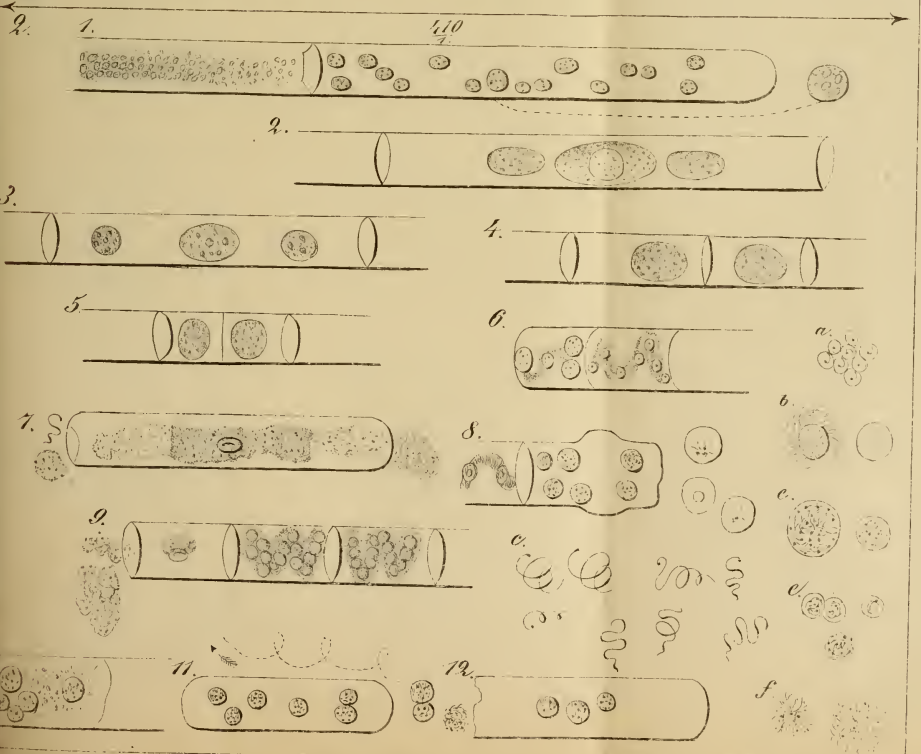 2. 1. 410/1.
2.
3.
4.
5.
6.
a.
7.
8.
b.
9.
c.
c.
d.
11.
12.
f.